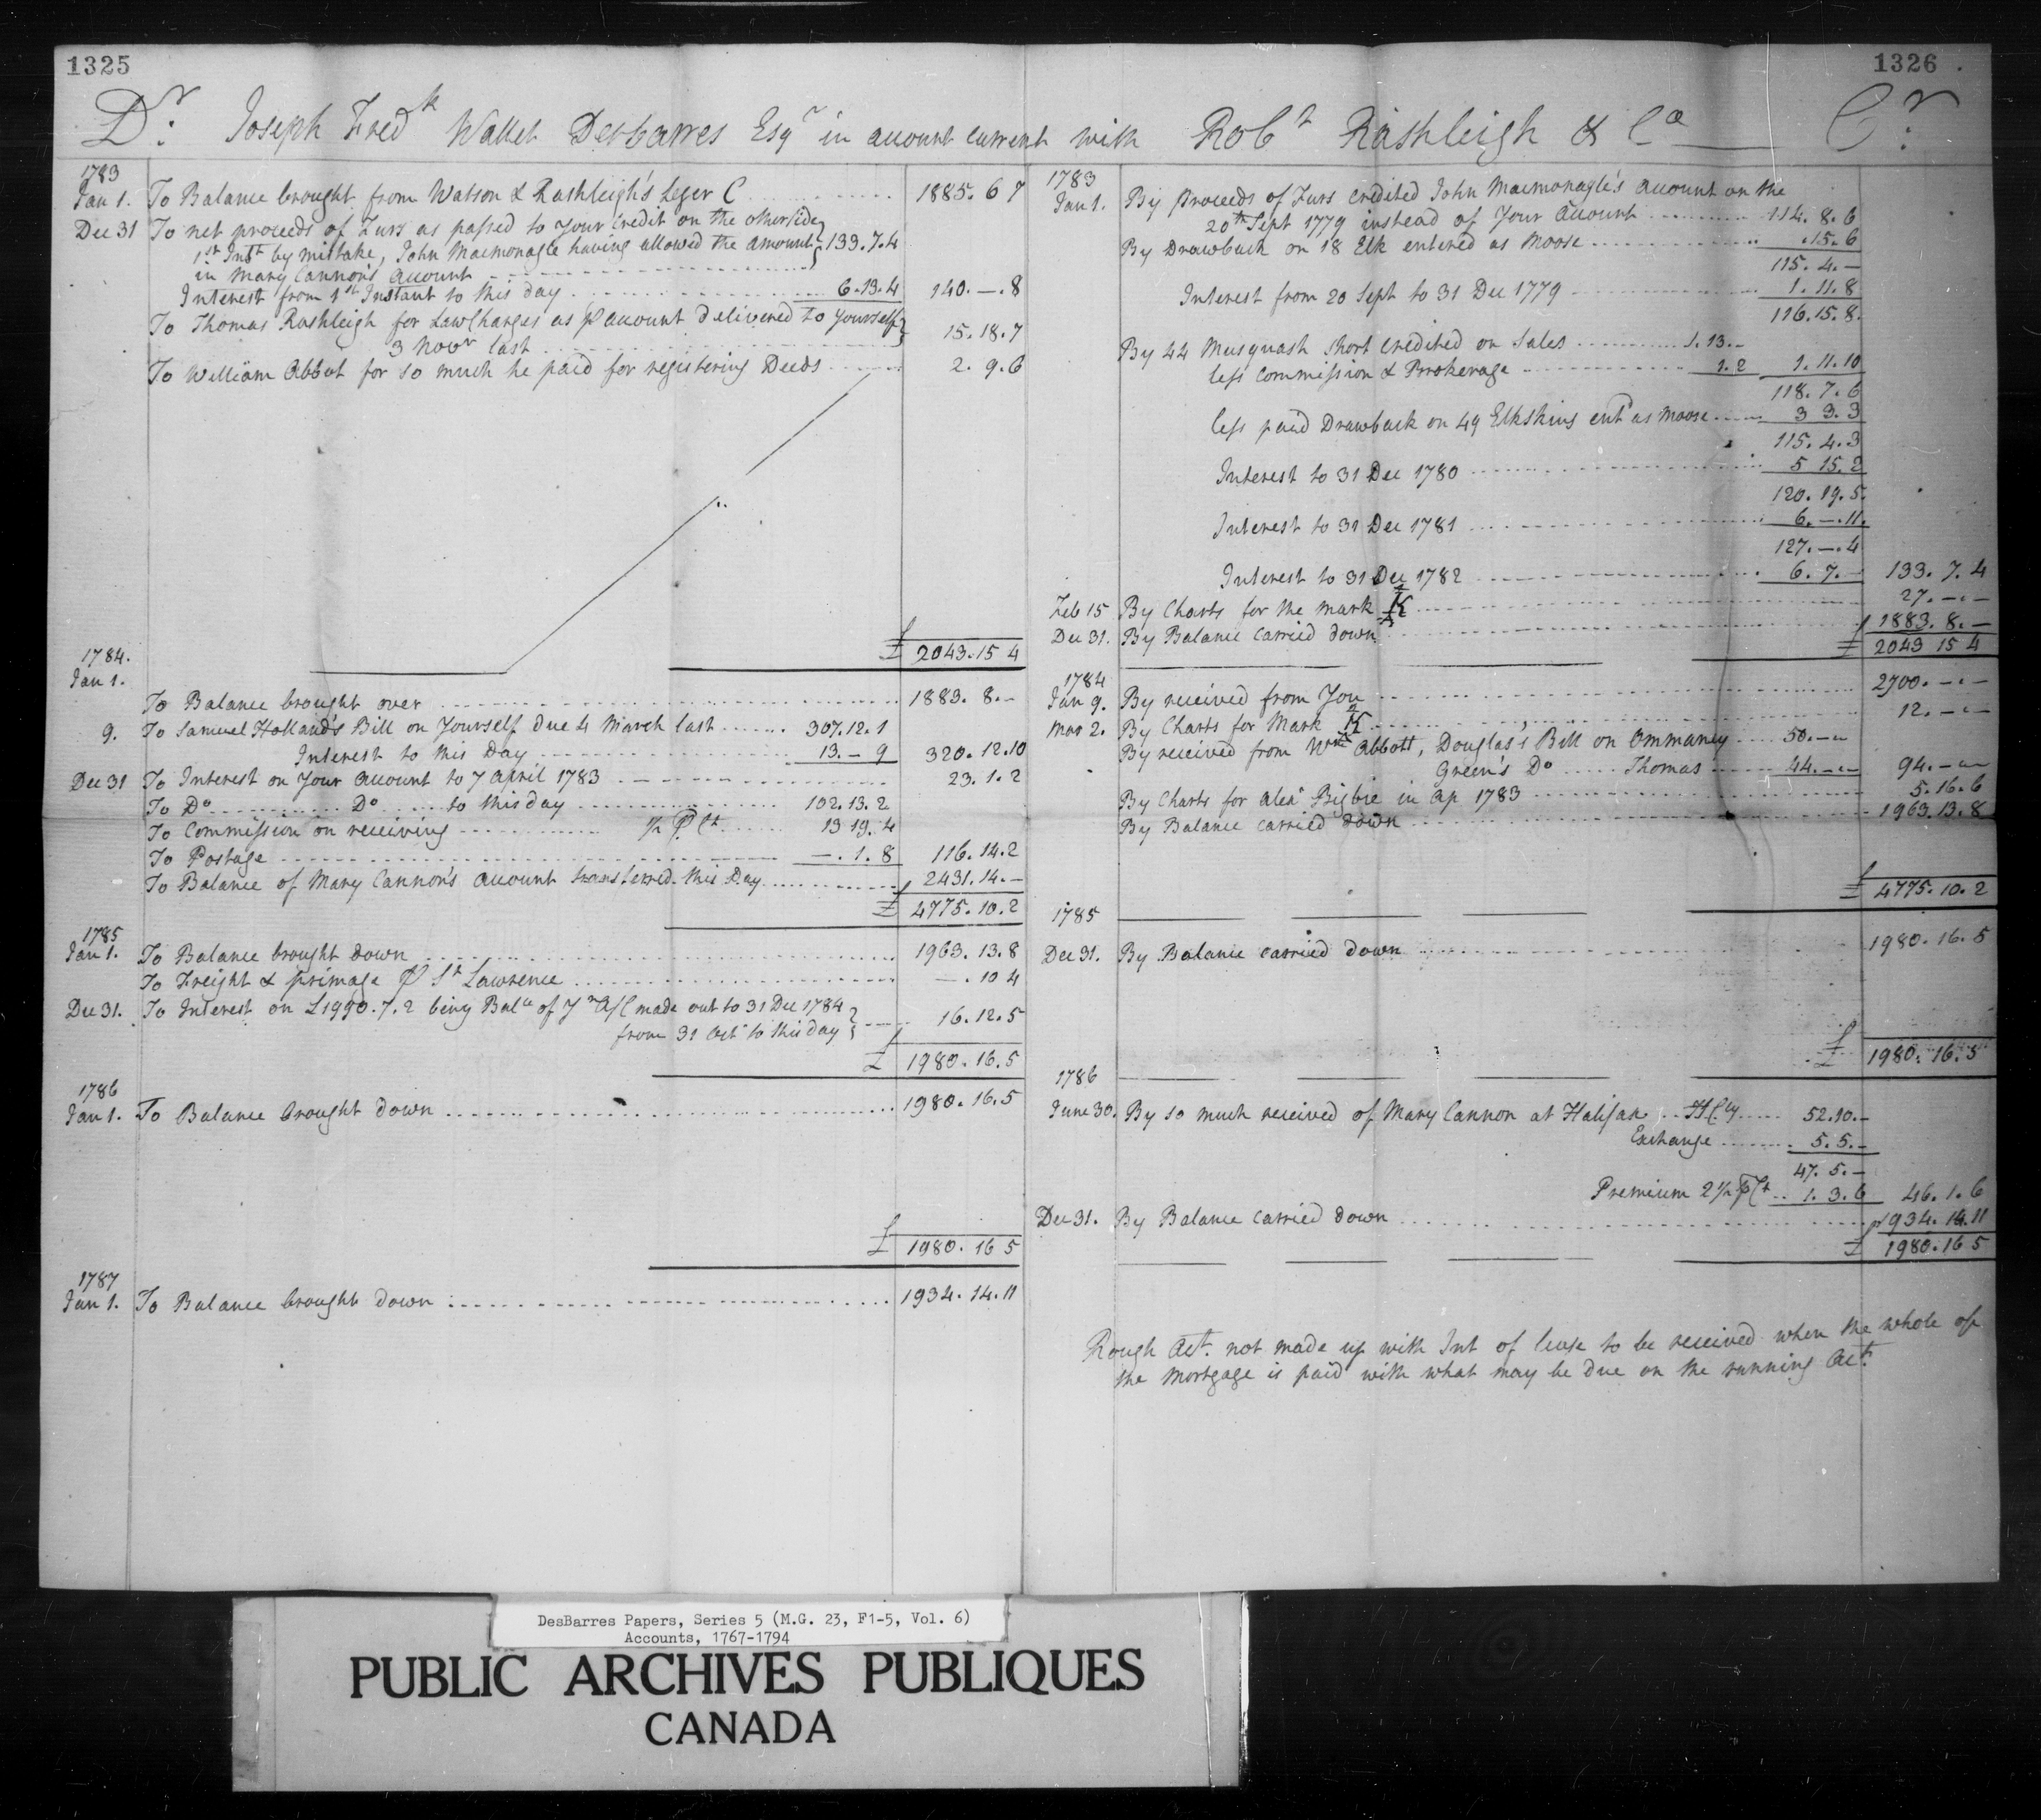 1325
1326
Dr. Joseph Fredk Wallet Desbarres Esqr in account current with Robt Rashleigh & Co Cr.
1783
Jan 1. To Balance brought from Watson & Rashleigh's Leger C 1885. 6 7
Dec 31 To net proceeds of Furs as passed to your credit on the otherside
1st Inst by mistake, John Macmonagle having allowed the amount 133.7.4
in Mary Cannon's account
Interest from 1st Instant to this day 6.13.4 140.—.8
To Thomas Rashleigh for Law Charges as p account delivered to yourself
3 Novr last 15.18.7
To William Abbot for so much he paid for registering Deeds 2.9.6
£ 2043.15 4
1784.
Jan 1.
To Balance brought over 1883. 8.–
9. To Samuel Holland's Bill on Yourself due 4 March last 307.12.1
Interest to this Day 13.– 9 320.12.10
Dec 31 To Interest on Your account to 7 April 1783 23.1.2
To Do Do to this day 102.13.2
To Commission on receiving ½ P Ct 13 19.4
To Postage —.1.8 116.14.2
To Balance of Mary Cannon's account transferred this Day 2431.14.–
£ 4775.10.2
1785
Jan 1. To Balance brought down 1963.13.8
To Freight & primage P St Lawrence —.10 4
Dec 31. To Interest on £1990.7.2 being Balce of Yr A/C made out to 31 Dec 1784
from 31 Octr to this day 16.12.5
£ 1980.16.5
1786
Jan 1. To Balance brought down 1980.16.5
£ 1980.16 5
1787
Jan 1. To Balance brought down 1934.14.11
1783
Jan 1. By proceeds of Furs credited John Macmonagle's account on the
20th Sept 1779 instead of Your account 114.8.6
By Drawback on 18 Elk entered as Moose .15.6
115.4.–
Interest from 20 Sept to 31 Dec 1779 1.11.8
116.15.8.
By 44 Musquash short credited on Sales 1.13.–
less commission & Brokerage 1.2 1.11.10
118.7.6
less paid Drawback on 49 Elkskins entd as moose 3 3.3
115.4.3
Interest to 31 Dec 1780 5 15.2
120.19.5.
Interest to 31 Dec 1781 6.–.11.
127.–.4
Interest to 31 Dec 1782 6.7.– 133.7.4
Feb 15 By Charts for the mark 27.–.–
Dec 31. By Balance carried down 1883.8.–
£ 2043 15 4
1784
Jan 9. By received from You 2700.–.–
Mar 2. By Charts for Mark 12.–.–
By received from Wm Abbott, Douglas's Bill on Ommaney 50.–.–
Green's Do Thomas 44.–.– 94.–.–
By Charts for Alexr Bigbie in Ap 1783 5.16.6
By Balance carried down 1963.13.8
£ 4775.10.2
1785
Dec 31. By Balance carried down 1980.16.5
£ 1980.16.5
1786
June 30. By so much received of Mary Cannon at Halifax 52.10.–
Exchange 5.5.–
47.5.–
Premium 2½ P Ct 1.3.6 46.1.6
Dec 31. By Balance carried down 1934.14.11
£ 1980.16 5
Rough Act. not made up with Int of lease to be received when the whole of
the mortgage is paid with what may be due on the running Act.
DesBarres Papers, Series 5 (M.G. 23, F1-5, Vol. 6)
Accounts, 1767-1794
PUBLIC ARCHIVES PUBLIQUES
CANADA